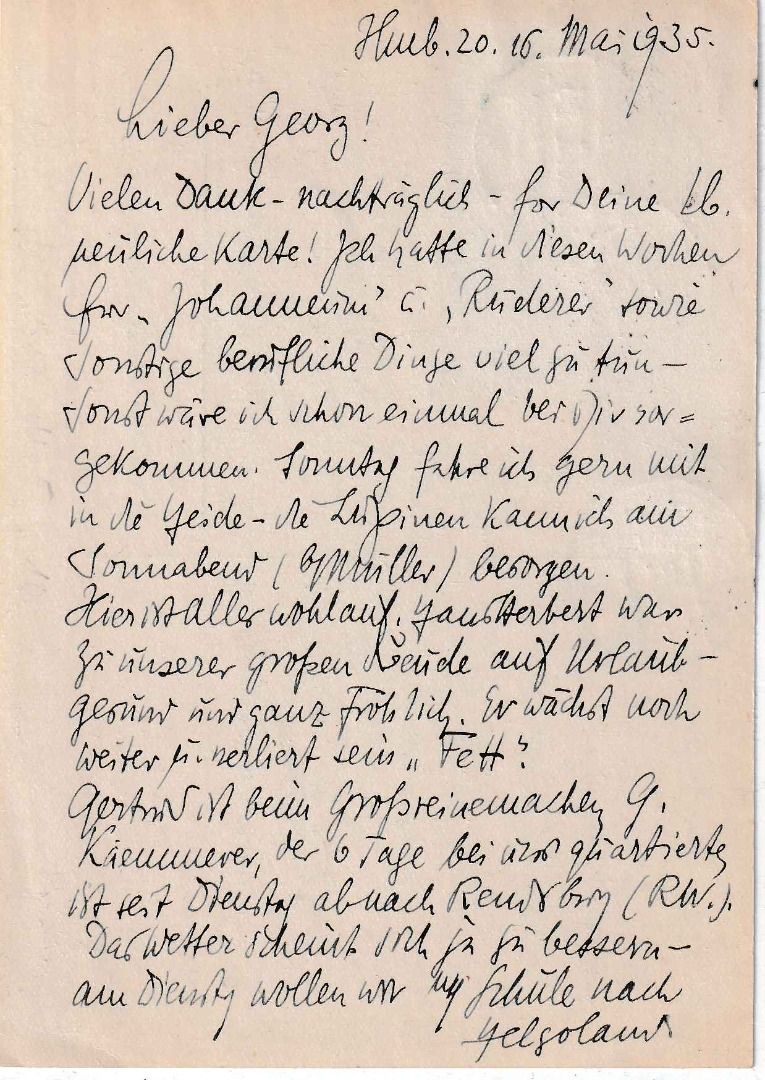 Hmb. 20. 16. Mai 1935.
Lieber Georg!
Vielen Dank - nachträglich - for Deine lb.
neuliche Karte! Ich hatte in diesen Wochen
für „Johanneum" u. „Ruderer" sowie
sonstige berufliche Dinge viel zu tun -
sonst wäre ich schon einmal bei Dir vor=
gekommen. Sonntag fahre ich gern mit
in die Heide - die Lupinen kann ich am
Sonnabend (Müller) besorgen.
Hier ist alles wohlauf. Hans Herbert war
zu unserer großen Freude auf Urlaub -
gesund und ganz fröhlich. Er wächst noch
weiter u. verliert sein „Fett".
Gertrud ist beim Großreinemachen, G.
Kaemmerer, der 6 Tage bei uns quartierte,
ist seit Dienstag ab nach Rendsburg (RW.).
Das Wetter scheint sich ja zu bessern -
am Dienstag wollen wir Schule nach
Helgoland